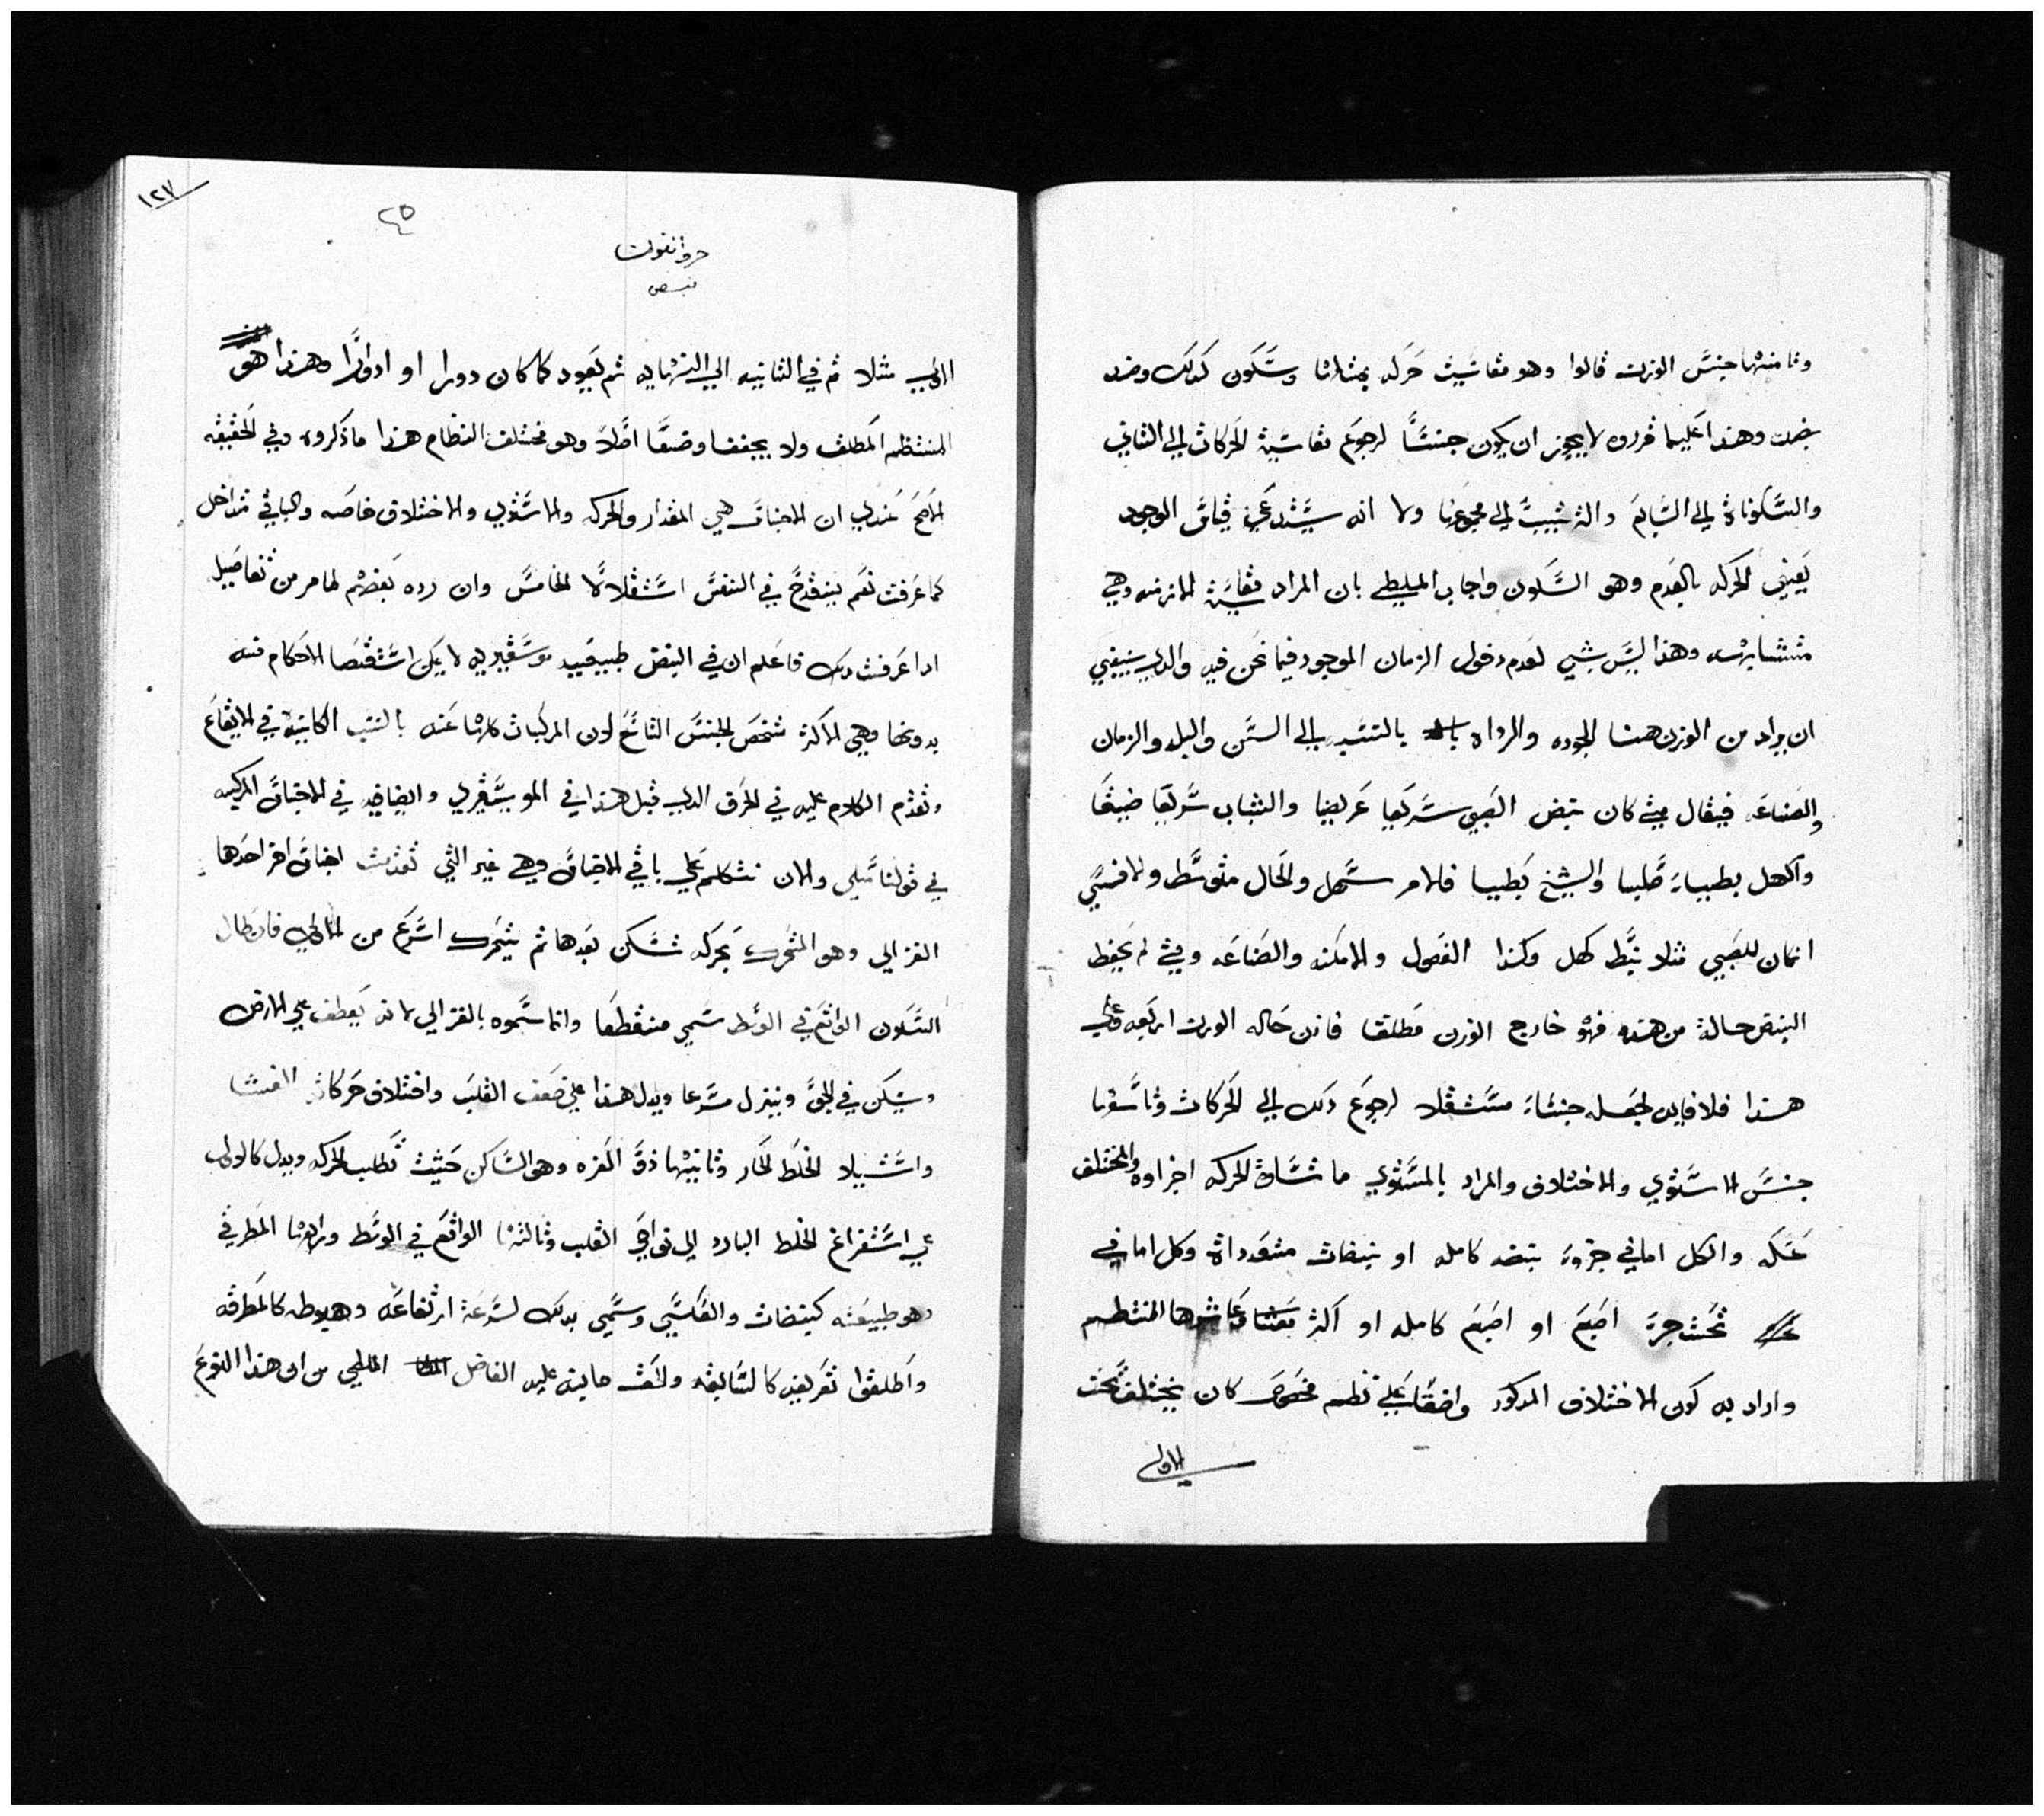 وثامنها جنس الوزن قالوا وهو مقاسيت حركه بمثلها وسكون كدلك وضد
بضد وهذا علي ما قرروه لا يجوز ان يكون جنسًا لرجوع مقاسية الحركات الي الثاني
والسكونات الي السابع والتركيب الي مجموعها ولا انه يستدعي قياس الموجود
يعني الحركه بالعدم وهو السكون واجاب الملطي بان المراد مقايسة الازمنه وهي
متشابهه وهذا ليس بشي لعدم دخول الزمان الموجود فيما نحن فيه والدي ينبغي
ان يراد من الوزن هنا الجوده والرداه بالنسبه الي السن والبلد والزمان
والصناعه فيقال متي كان نبض الصبي سريعا عريضا والشباب سريعا ضيقا
والكهل بطيا صليبا والشيخ بطيا فالامر سهل والحال متوسط والا فسي
انكان للصبي مثلا نبض كهل وكذا الفصول والامكنه والصناعه ومتي لم يحفظ
النبض حالة من هذه فهو خارج الوزن مطلقا فاذن حاله الوزن اربعه وعلي
هذا فلا فايده لجعله جنسًا مستقلا لرجوع دلك الي الحركات وتاسعها
جنس الاستوي والاختلاف والمراد بالمستوي ما تشابهت الحركه اجزاوه والمختلف
عكسه والكل اما في جزو نبضه كامله او نبضات متعددات وكل اما في
تحت جزء اصبع او اصبع كامله او اكثر وعاشرها المنتظم
واراد به كون الاختلاف المدكور واقعًا علي نظم مخصوص كان يختلف تحت
الاولي
١٢٧
٢٥
حرف النون
نبض
الاولي مثلا ثم في الثانيه الي النهايه ثم يعود كما كان دورا او ادوارًا وهذا هو
المنتظم المطلق ولا يحفظ وضعًا اصلًا وهو مختلف النظام هذا ما ذكروه وفي الحقيقه
الاصح عندي ان الاجناس هي المقدار والحركه والاستوي والاختلاف خاصه والباقي متداخل
كما عرفت نعم ينقدح في النفس استقلالًا الخامس وان رده بعضهم لما مر من تفاصيله
ادا عرفت دلك فاعلم ان في النبض طبيعيه موسيقيريه لا يمكن استقصا الاحكام منه
بدونها وهي الاكثر تشخص الجنس التاسع لان المركبات كلها عنه بالنسب الكاينة في الايقاع
وتقدم الكلام عليه في الحرف الدي قبل هذا في الموسيقيري وايضا فيه في الاجناس المركبه
في قولنا تملي والان نتكلم علي باقي الاجناس وهي غير التي تقدمت اجناس اخر احدها
الغزالي وهو المتحرك بحركه تسكن بعدها ثم يتحرك اسرع من الاولي فان طال
السكون الواقع في الوسط سمي منقطعا وانما سموه بالغزالي لانه يعطف علي الارض
ويسكن في الجو وينزل مسرعا ويدل هذا علي ضعف القلب واختلاف حركات الغشا
واستيلا الخلط الحار وثانيها ذو الفتره وهو الساكن حيث تطلب الحركه ويدل كالاول
علي استفراغ الخلط البارد الي نواحي القلب وثالثها الواقع في الوسط ورابعها المطرقي
وهو طبيعته كنبضات والعكسي وسمي بدلك لسرعة ارتفاعه وهبوطه كالمطرقه
واطلقوا تعريفه كالسابقه والحق ما نبه عليه الفاضل الملطي من ان هذا النوع